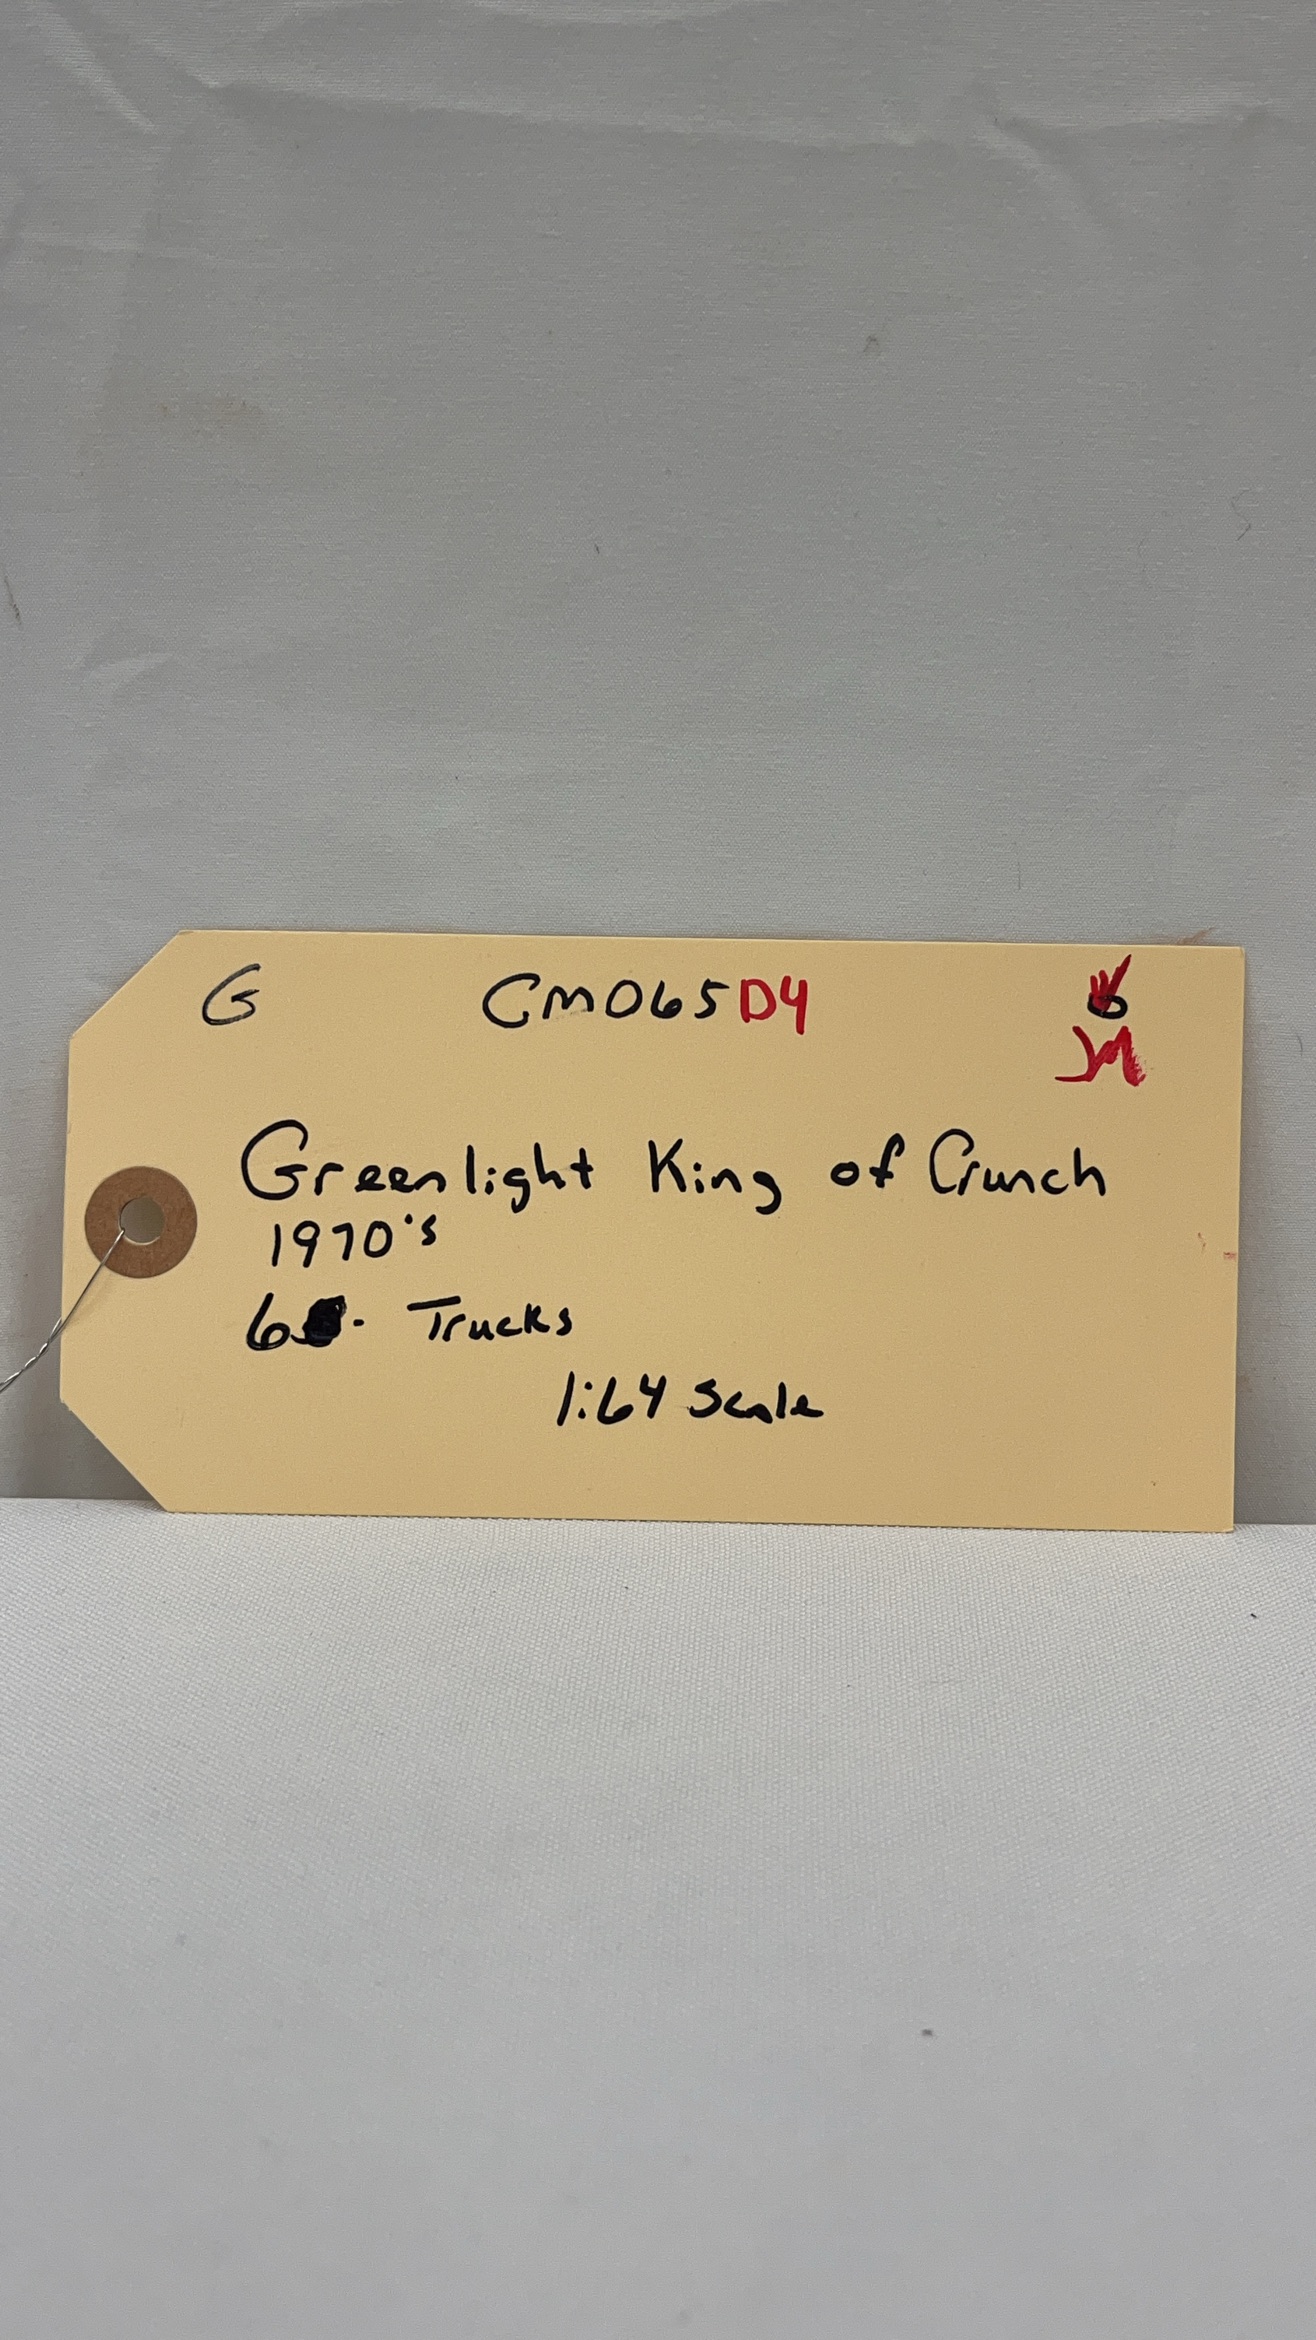 G CM065D4
Greenlight King of Crunch
1970's
6 . Trucks
1:64 Scale